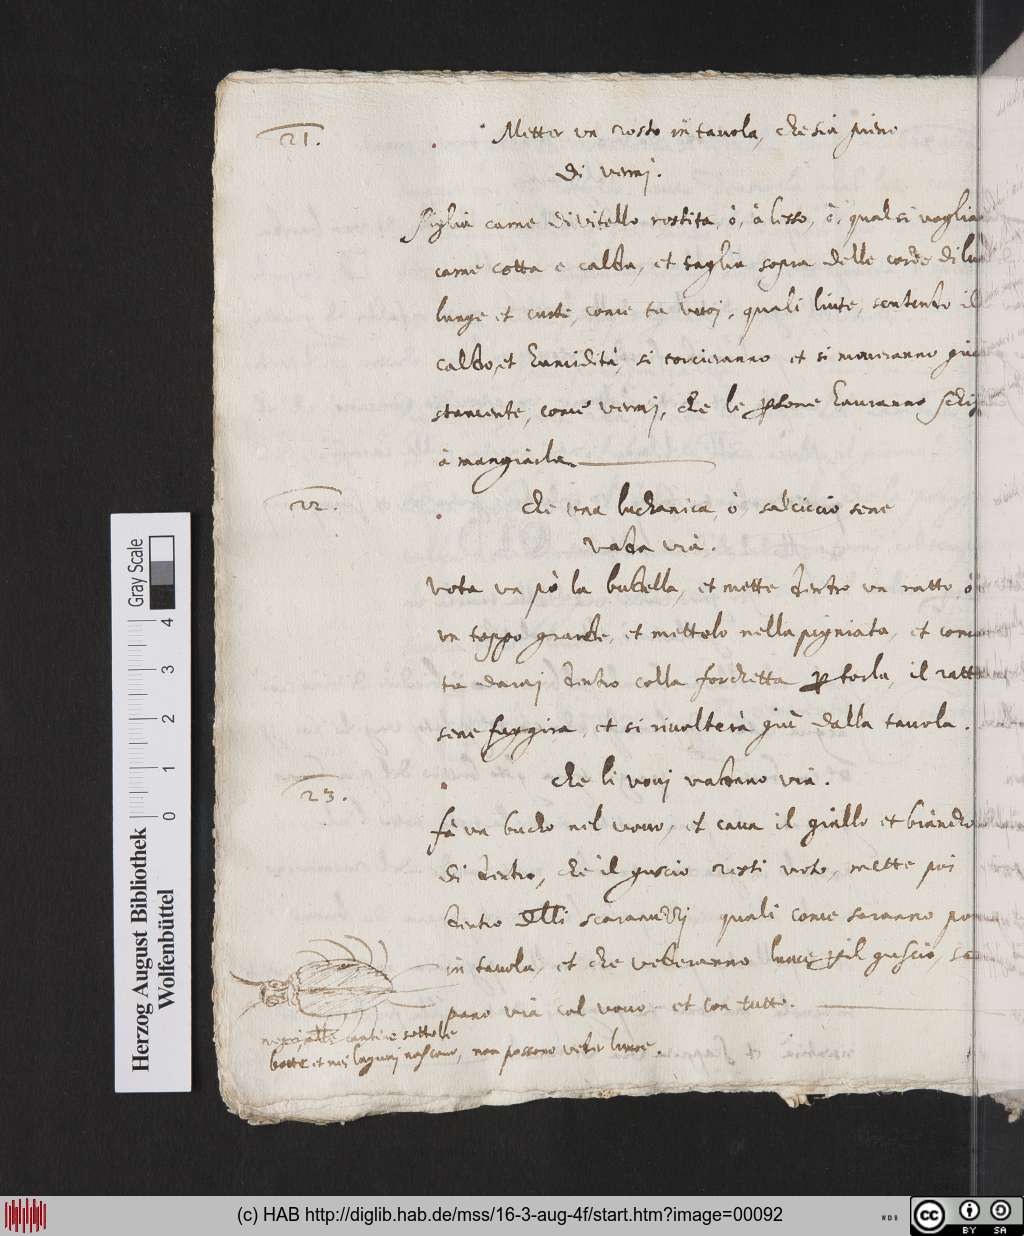 21.
Metter un rosto in tavola, che sia pieno
di vermi.
Piglia carne di vitello rostita, ò, à lesso, ò, qual si voglia
carne cotta e calda, et taglia sopra delle corde di
lunge et curte, come tu vuoi, quali liute, sentendo il
caldo, et humidità, si torcieranno et si moveranno giu
stamente, come vermi, che le psone hauranno schi
à mangiarla.
22.
Che una luchanica, ò, salciccio sene
vada via.
Vota un pò la budella, et mette dentro un ratto ò
un toppo grande, et mettelo nella pigniata, et come
tu darai dentro colla forchetta p torla, il ratt
sene fuggira, et si rivolterà giù dalla tavola.
23.
Che li vovi vadano via.
Fà un bucho nel vovo, et cava il giallo et biancho
di dentro, che il guscio resti voto, mette poi
dentro delli scaravuzzi quali come saranno
in tavola, et che vederanno luce p il guscio,
pano via col vovo et con tutto.
neri, alle cantine sotto le
botte et nei laguni nascono, non possono veder luce.
Gray Scale
0 1 2 3 4
Herzog August Bibliothek
Wolfenbüttel
(c) HAB http://diglib.hab.de/mss/16-3-aug-4f/start.htm?image=00092
WDB
cc BY SA